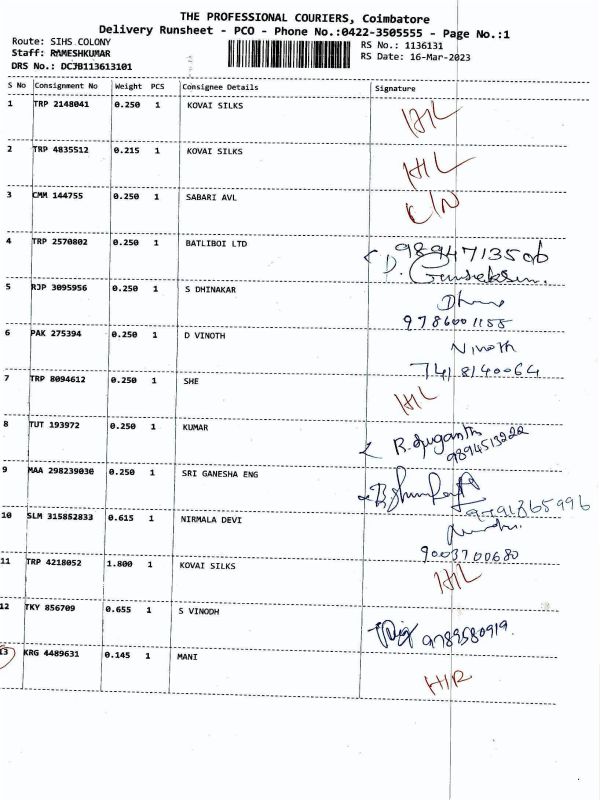 THE PROFESSIONAL COURIERS, Coimbatore
Delivery Runsheet - PCO - Phone No.:0422-3505555 - Page No.:1
Route: SIHS COLONY
RS No.: 1136131
Staff: RAMESHKUMAR
RS Date: 16-Mar-2023
DRS No.: DCJB113613101
S No Consignment No Weight PCS Consignee Details Signature
1 TRP 2148041 0.250 1 KOVAI SILKS H/L
2 TRP 4835512 0.215 1 KOVAI SILKS H/L
3 CMM 144755 0.250 1 SABARI AVL C/N
4 TRP 2570802 0.250 1 BATLIBOI LTD 9894713506
5 RJP 3095956 0.250 1 S DHINAKAR
9786001155
6 PAK 275394 0.250 1 D VINOTH Vinoth
7418140064
7 TRP 8094612 0.250 1 SHE H/L
8 TUT 193972 0.250 1 KUMAR R. Suganth
9894513222
9 MAA 298239030 0.250 1 SRI GANESHA ENG
9791365996
10 SLM 315852833 0.615 1 NIRMALA DEVI
9003700680
11 TRP 4218052 1.800 1 KOVAI SILKS H/L
12 TKY 856709 0.655 1 S VINODH 9789580919.
13 KRG 4489631 0.145 1 MANI H/R